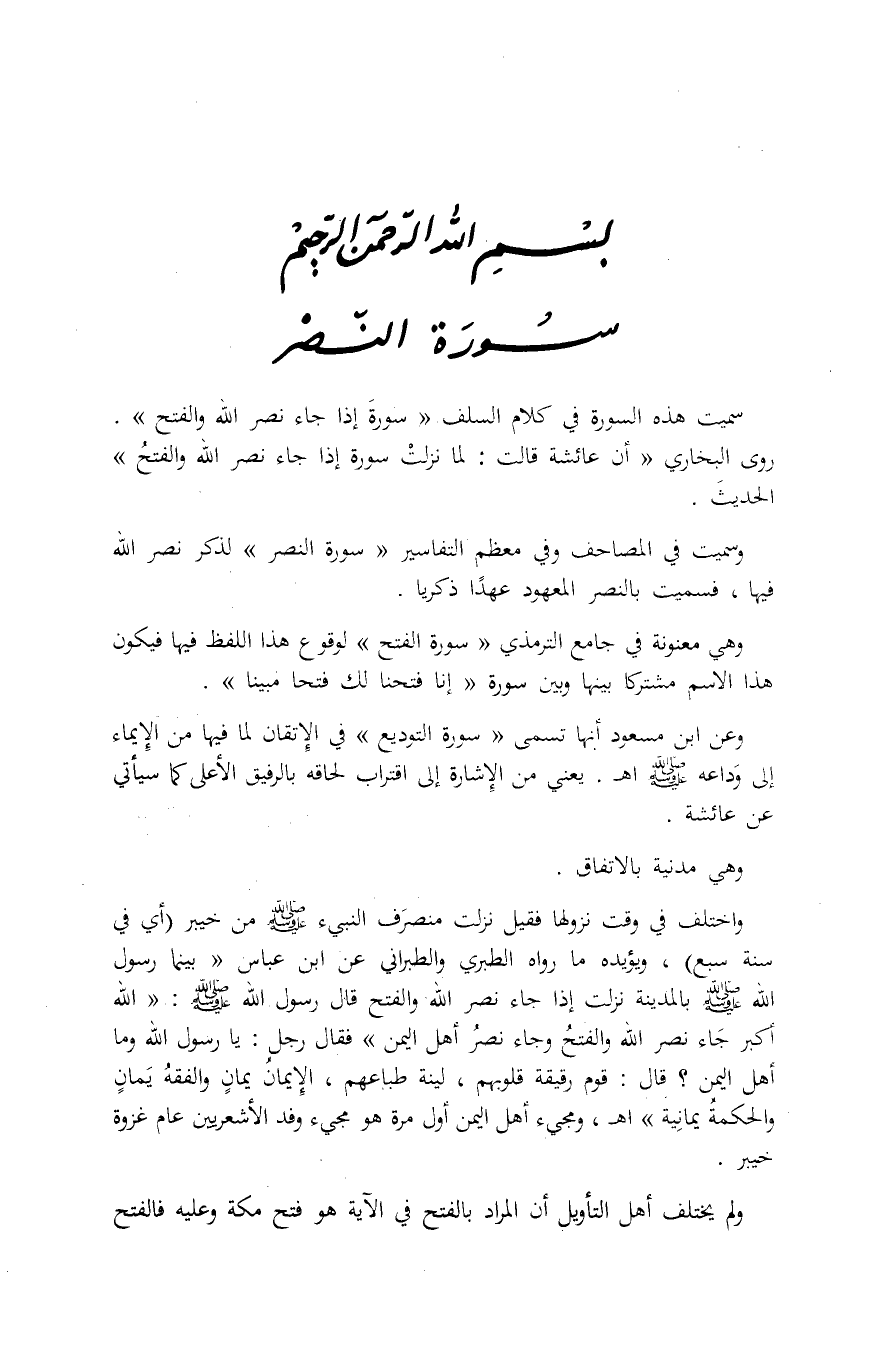 بِسْمِ اللهِ الرَّحْمَنِ الرَّحِيمِ
سُورَة النَّصْر
سميت هذه السورة في كلام السلف « سورةَ إذا جاء نصر الله والفتح » .
روى البخاري « أن عائشة قالت : لما نزلتْ سورة إذا جاء نصر الله والفتحُ »
الحديثَ .
وسميت في المصاحف وفي معظم التفاسير « سورة النصر » لذكر نصر الله
فيها ، فسميت بالنصر المعهود عهدًا ذكريا .
وهي معنونة في جامع الترمذي « سورة الفتح » لوقوع هذا اللفظ فيها فيكون
هذا الاسم مشتركا بينها وبين سورة « إنا فتحنا لك فتحا مبينا » .
وعن ابن مسعود أنها تسمى « سورة التوديع » في الإتقان لما فيها من الإيماء
إلى وَداعه ﷺ اهـ . يعني من الإشارة إلى اقتراب لحاقه بالرفيق الأعلى كما سيأتي
عن عائشة .
وهي مدنية بالاتفاق .
واختلف في وقت نزولها فقيل نزلت منصرَف النبيء ﷺ من خيبر (أي في
سنة سبع) ، ويؤيده ما رواه الطبري والطبراني عن ابن عباس « بينما رسول
الله ﷺ بالمدينة نزلت إذا جاء نصر الله والفتح قال رسول الله ﷺ : « الله
أكبر جَاء نصر الله والفتحُ وجاء نصرُ أهل اليمن » فقال رجل : يا رسول الله وما
أهل اليمن ؟ قال : قوم رقيقة قلوبهم ، لينة طباعهم ، الإيمانُ يمانٍ والفقهُ يَمانٍ
والحكمةُ يمانِية » اهـ ، ومجيء أهل اليمن أول مرة هو مجيء وفد الأشعريين عام غزوة
خيبر .
ولم يختلف أهل التأويل أن المراد بالفتح في الآية هو فتح مكة وعليه فالفتح